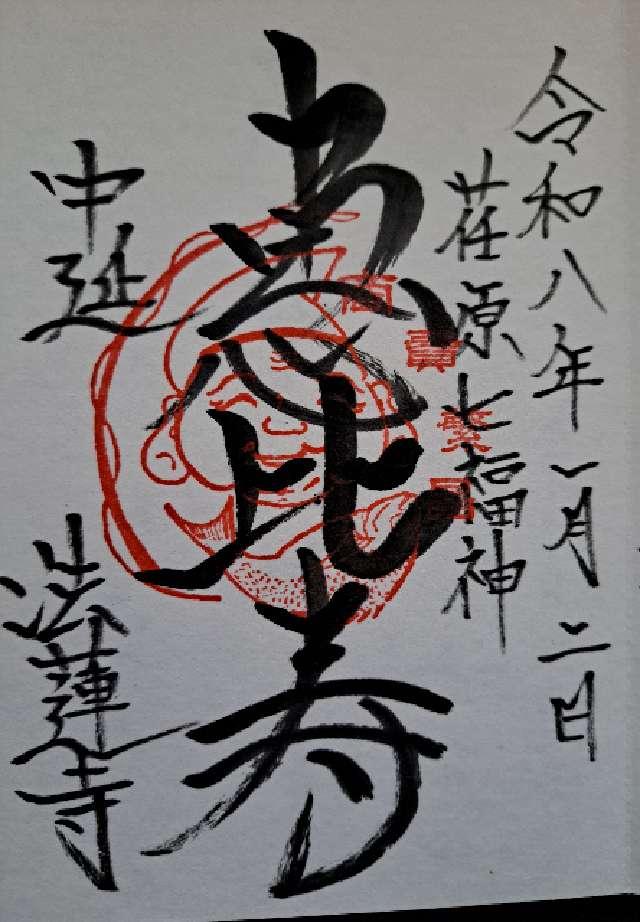 令和八年一月二日
荏原七福神
恵比寿
商売繁昌
中延
法蓮寺